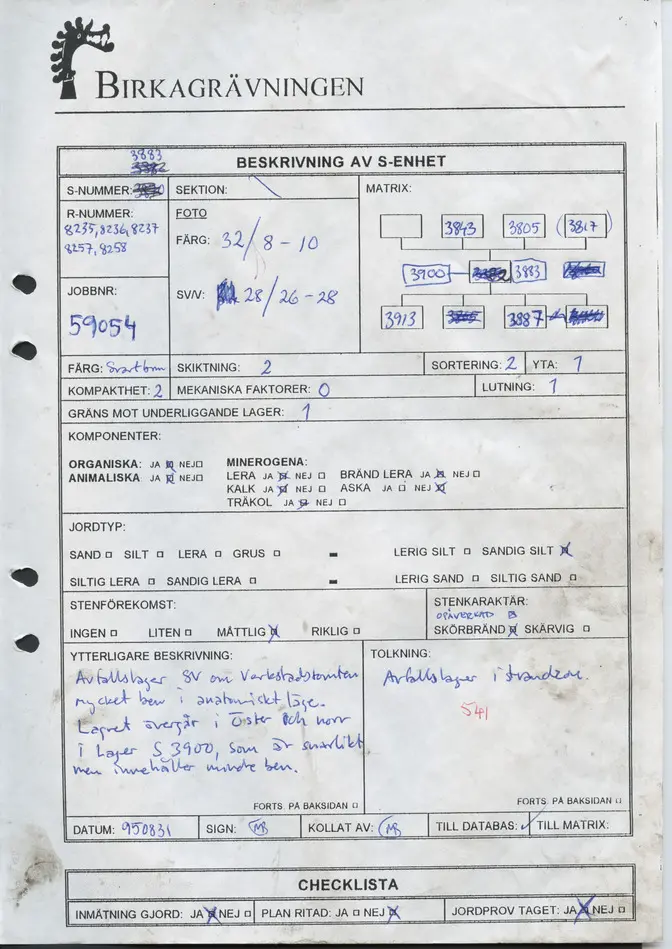 BIRKAGRÄVNINGEN
3883
BESKRIVNING AV S-ENHET
S-NUMMER:
SEKTION:
MATRIX:
R-NUMMER:
8235, 8236, 8237
8257, 8258
FOTO
FÄRG: 32/8-10
SV/V: 28/26-28
JOBBNR:
59054
3843 3805 (3817)
3900 3883
3913 3887
FÄRG: Svartbrun SKIKTNING: 2 SORTERING: 2 YTA: 1
KOMPAKTHET: 2 MEKANISKA FAKTORER: 0 LUTNING: 1
GRÄNS MOT UNDERLIGGANDE LAGER: 1
KOMPONENTER:
ORGANISKA: JA ☒ NEJ □ MINEROGENA:
ANIMALISKA JA ☒ NEJ □ LERA JA ☒ NEJ □ BRÄND LERA JA ☒ NEJ □
KALK JA ☒ NEJ □ ASKA JA □ NEJ ☒
TRÄKOL JA ☒ NEJ □
JORDTYP:
SAND □ SILT □ LERA □ GRUS □ - LERIG SILT □ SANDIG SILT ☒
SILTIG LERA □ SANDIG LERA □ - LERIG SAND □ SILTIG SAND □
STENFÖREKOMST: STENKARAKTÄR:
OPÅVERKAD ☒
INGEN □ LITEN □ MÅTTLIG ☒ RIKLIG □ SKÖRBRÄND ☒ SKÄRVIG □
YTTERLIGARE BESKRIVNING:
Avfallslager SV om Verkstadstomten
mycket ben i anatomiskt läge.
Lagret övergår i Öster och norr
i Lager S 3900, som är snarlikt
men innehåller mindre ben.
FORTS. PÅ BAKSIDAN □
TOLKNING:
Avfallslager i strandzon.
541
FORTS. PÅ BAKSIDAN □
DATUM: 950831 SIGN: MB KOLLAT AV: MB TILL DATABAS: ✓ TILL MATRIX:
CHECKLISTA
INMÄTNING GJORD: JA ☒ NEJ □ PLAN RITAD: JA □ NEJ ☒ JORDPROV TAGET: JA ☒ NEJ □